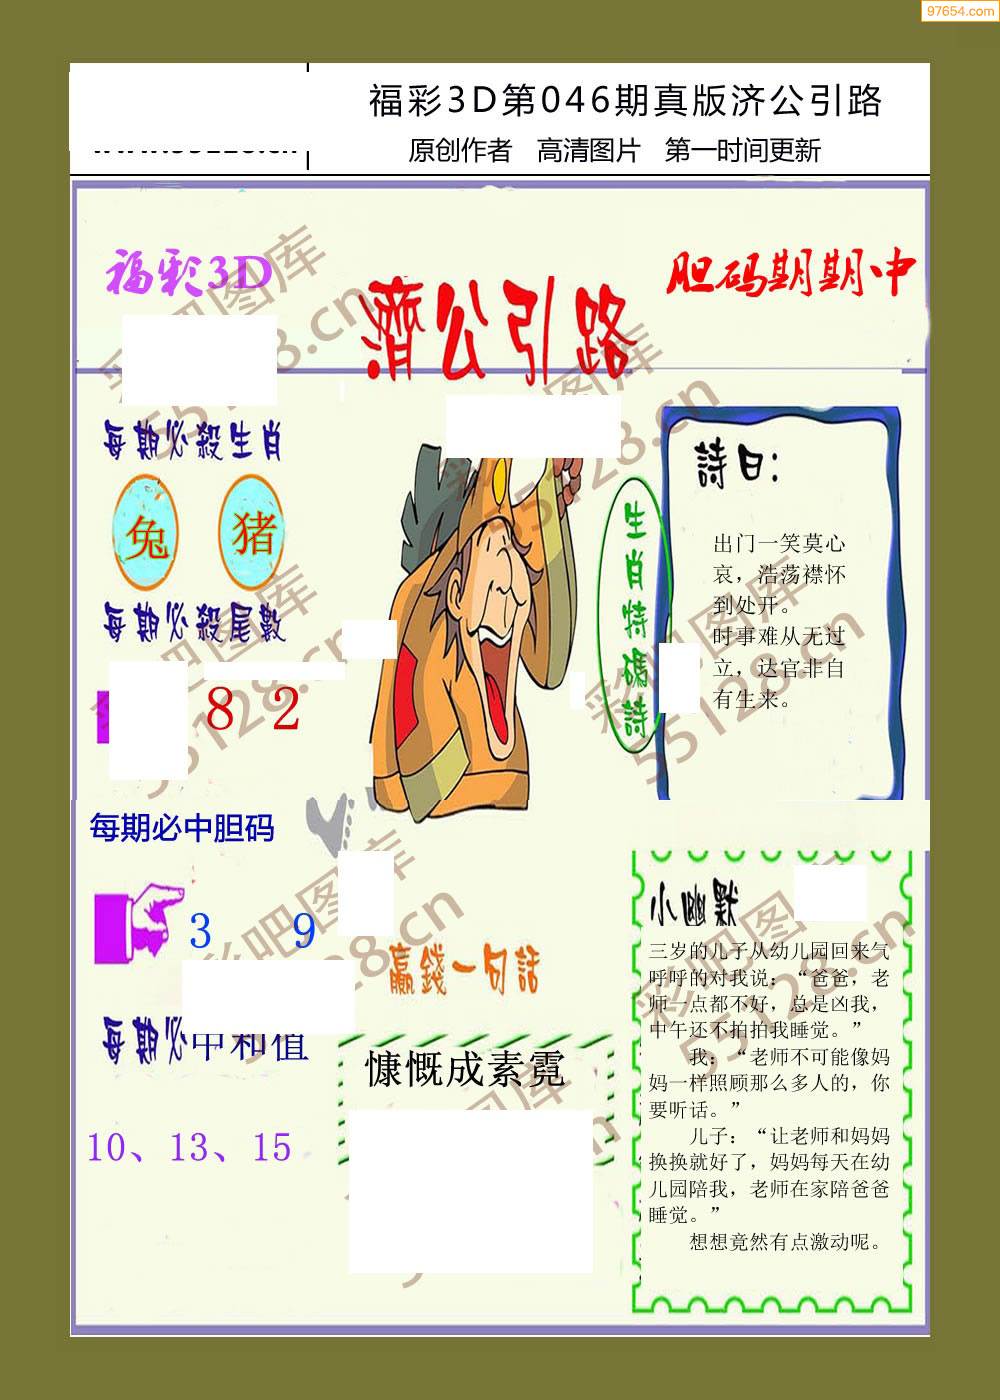 97654.com
福彩3D第046期真版济公引路
原创作者 高清图片 第一时间更新
福彩3D
濟公引路
胆码期期中
每期必殺生肖
兔 猪
每期必殺尾數
8 2
每期必中胆码
3 9
每期必中和值
10、13、15
生肖特碼詩
詩曰：
出门一笑莫心
哀，浩荡襟怀
到处开。
时事难从无过
立，达官非自
有生来。
贏錢一句話
慷慨成素霓
小幽默
三岁的儿子从幼儿园回来气
呼呼的对我说：“爸爸，老
师一点都不好，总是凶我，
中午还不拍拍我睡觉。”
我：“老师不可能像妈
妈一样照顾那么多人的，你
要听话。”
儿子：“让老师和妈妈
换换就好了，妈妈每天在幼
儿园陪我，老师在家陪爸爸
睡觉。”
想想竟然有点激动呢。
彩吧图库
55128.cn